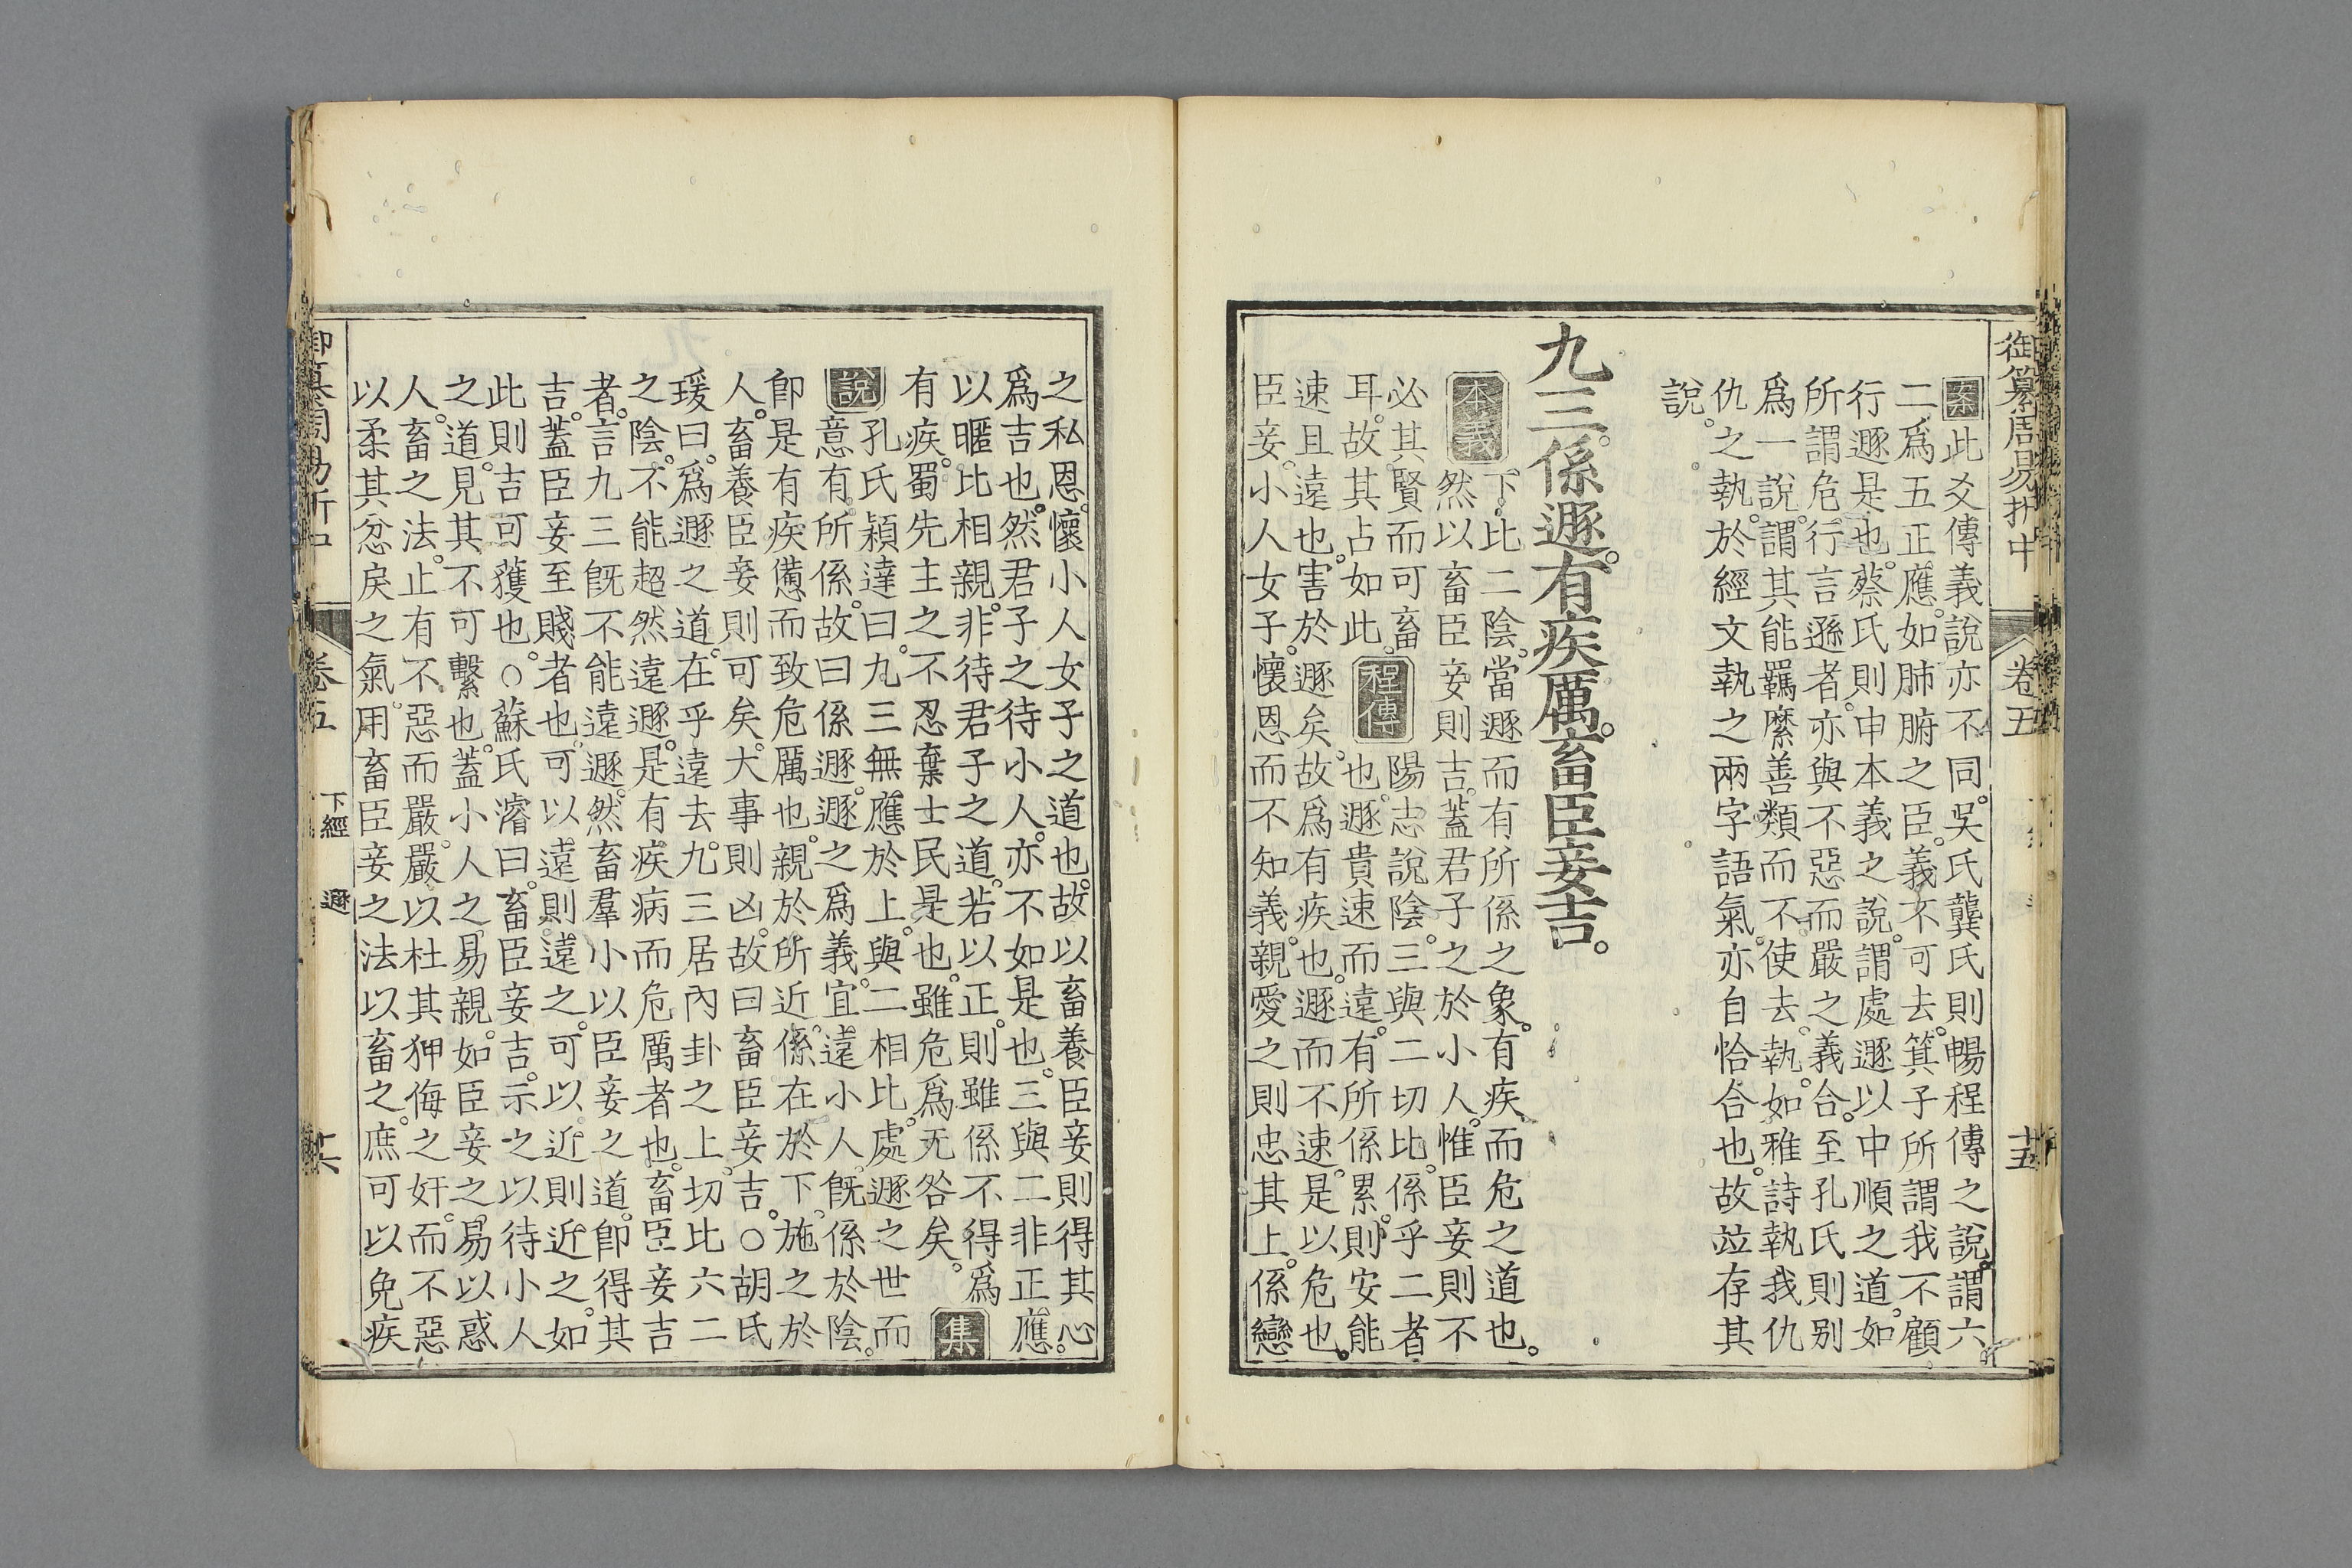 御纂周易折中 卷五 十五
案此爻傳義說亦不同。吳氏龔氏則暢程傳之說。謂六
二爲五正應。如肺腑之臣。義不可去。箕子所謂我不顧
行遯是也。蔡氏則申本義之說。謂處遯以中順之道。如
所謂危行言遜者。亦與不惡而嚴之義合。至孔氏則別
爲一說。謂其能羈縻善類而不使去。執如雅詩執我仇
仇之執。於經文執之兩字語氣。亦自恰合也。故竝存其
說。
九三。係遯。有疾厲。畜臣妾吉。
本義 下比二陰。當遯而有所係之象。有疾而危之道也。
然以畜臣妾則吉。蓋君子之於小人。惟臣妾則不
必其賢而可畜
耳。故其占如此。
程傳 陽志說陰。三與二切比。係乎二者
也。遯貴速而遠。有所係累。則安能
速且遠也。害於遯矣。故爲有疾也。遯而不速。是以危也。
臣妾。小人女子。懷恩而不知義。親愛之則忠其上。係戀
之私恩。懷小人女子之道也。故以畜養臣妾則得其心
爲吉也。然君子之待小人。亦不如是也。三與二非正應。
以暱比相親。非待君子之道。若以正。則雖係不得爲
有疾。蜀先主之不忍棄士民是也。雖危爲无咎矣。
集說 孔氏穎達曰。九三無應於上。與二相比。處遯之世而
意有所係。故曰係遯。遯之爲義。宜遠小人。旣係於陰。
卽是有疾憊而致危厲也。親於所近。係在於下。施之於
人。畜養臣妾則可矣。大事則凶。故曰畜臣妾吉。○胡氏
瑗曰。爲遯之道。在乎遠去。九三居內卦之上。切比六二
之陰。不能超然遠遯。是有疾病而危厲者也。畜臣妾吉
者。言九三旣不能遠遯。然畜羣小以臣妾之道。卽得其
吉。蓋臣妾至賤者也。可以遠則遠之。可以近則近之。如
此則吉可獲也。○蘇氏濬曰。畜臣妾吉。示之以待小人
之道。見其不可繫也。蓋小人之易親。如臣妾之易以惑
人。畜之之法。止有不惡而嚴。嚴以杜其狎侮之奸。而不惡
以柔其忿戾之氣。用畜臣妾之法以畜之。庶可以免疾
御纂周易折中 卷五 下經 遯 十六